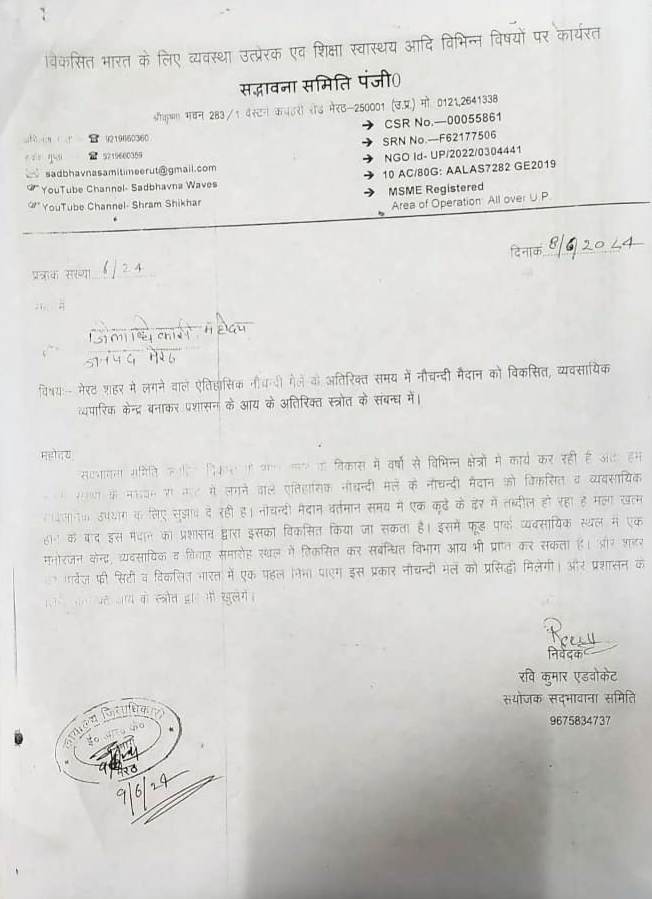 विकसित भारत के लिए व्यवस्था उत्प्रेरक एव शिक्षा स्वास्थय आदि विभिन्न विषयों पर कार्यरत
सद्भावना समिति पंजी0
श्रीकृष्णा भवन 283/1 वेस्टर्न कचहरी रोड मेरठ–250001 (उ.प्र.) मो. 0121,2641338
☎ 9219660360
गुप्ता – ☎ 9219660359
sadbhavnasamitimeerut@gmail.com
YouTube Channel- Sadbhavna Waves
YouTube Channel- Shram Shikhar
→ CSR No.—00055861
→ SRN No.—F62177506
→ NGO Id- UP/2022/0304441
→ 10 AC/80G: AALAS7282 GE2019
→ MSME Registered
Area of Operation: All over U.P.
पत्रांक संख्या 6/24
दिनांक 8/6/2024
में
जिलाधिकारी महोदय
जनपद मेरठ
विषयः– मेरठ शहर मे लगने वाले ऐतिहासिक नौचन्दी मेले के अतिरिक्त समय में नौचन्दी मैदान को विकसित, व्यवसायिक
व्यपारिक केन्द्र बनाकर प्रशासन के आय के अतिरिक्त स्त्रोत के संबन्ध में।
महोदय
सदभावना समिति के विकास में वर्षो से विभिन्न क्षेत्रों मे कार्य कर रही है अतः हम
के माध्यम से में लगने वाले एतिहासिक नौचन्दी मेले के नौचन्दी मैदान को विकसित व व्यवसायिक
उपयोग के लिए सुझाव दे रही है। नौचन्दी मैदान वर्तमान समय मे एक कूढे के ढेर में तब्दील हो रहा है मेला खत्म
होने के बाद इस मैदान को प्रशासन द्वारा इसको विकसित किया जा सकता है। इसमें फूड पार्क व्यवसायिक स्थल में एक
मनोरंजन केन्द्र, व्यवसायिक व विवाह समारोह स्थल में विकसित कर सबंधित विभाग आय भी प्राप्त कर सकता है। और शहर
गार्वेज फ्री सिटी व विकसित भारत में एक पहल निभा पाएगा इस प्रकार नौचन्दी मेले को प्रसिद्धी मिलेगी। और प्रशासन के
आय के स्त्रोत द्वार भी खुलेगें।
निवेदक
रवि कुमार एडवोकेट
सयोजक सद्भावाना समिति
9675834737
कार्यालय जिलाधिकारी
मेरठ
9/6/24